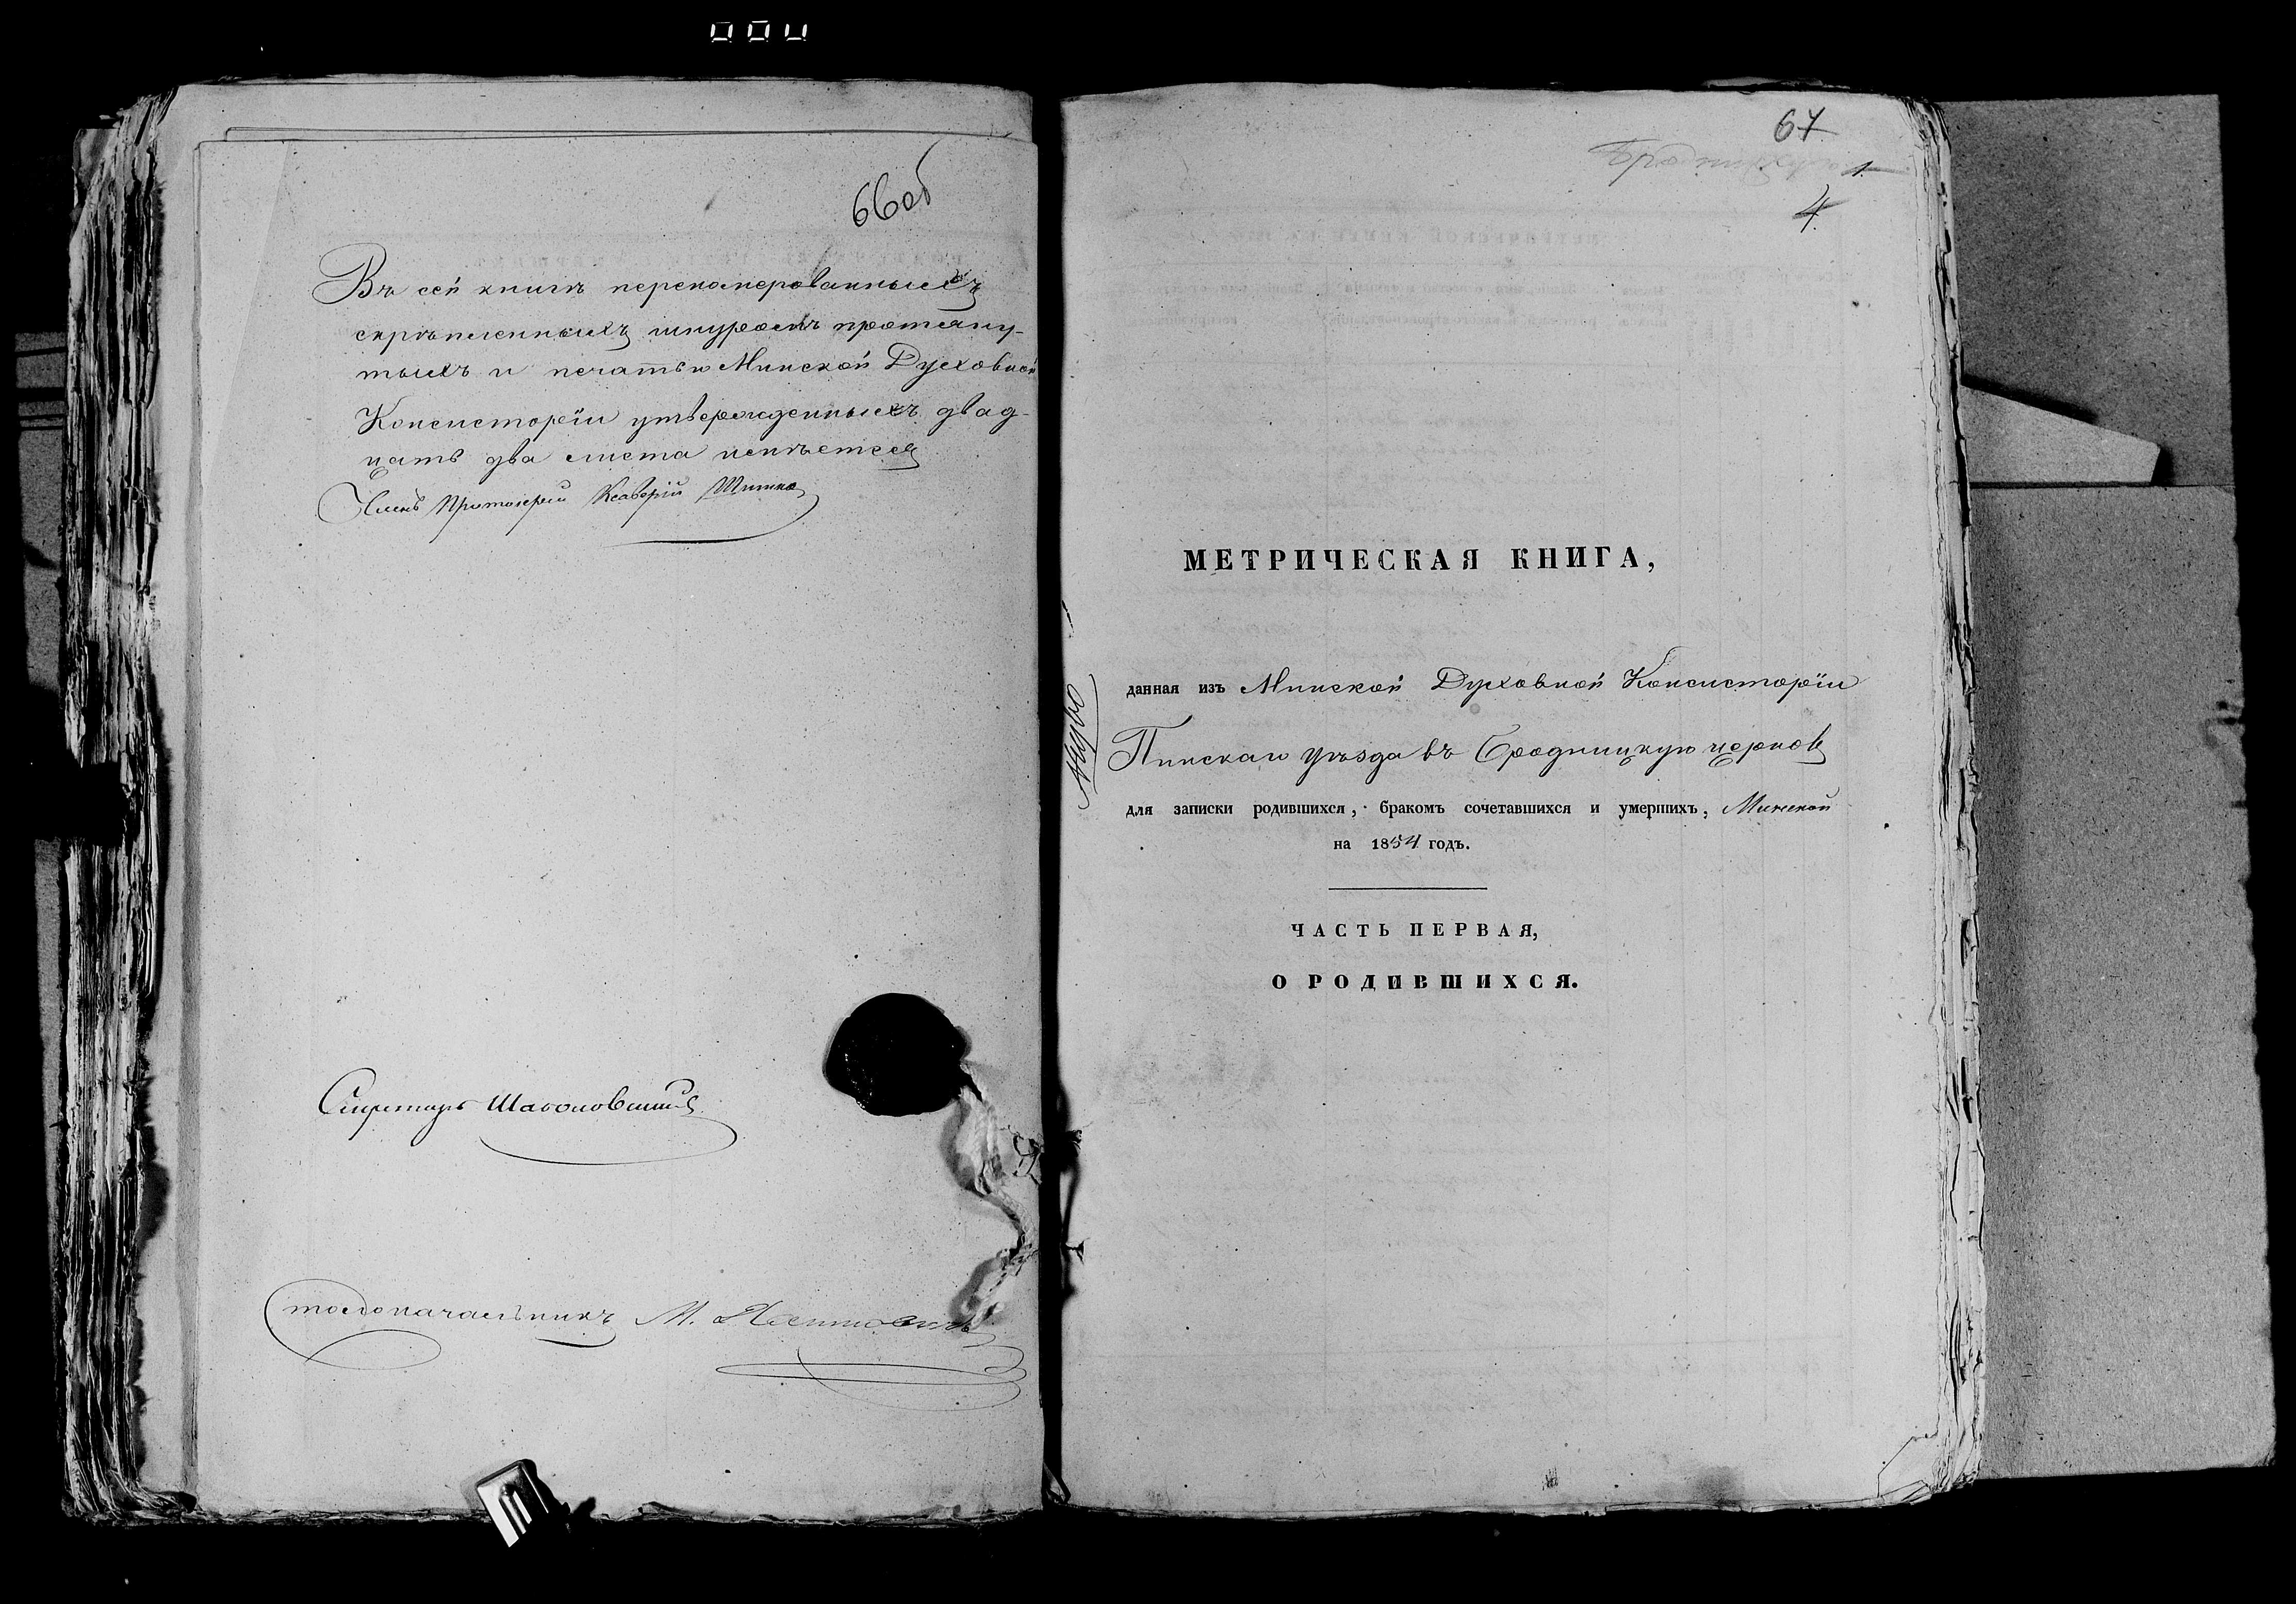 66об
Въ сей книгѣ перенумерованныхъ
скрѣпленныхъ шнуромъ протяну-
тыхъ и печатью Минской Духовной
Консисторіи утвержденныхъ двад-
цать два листа имѣется
Членъ Протоіерей Ксаверій
Секретарь
Столоначальникъ М.
67
1
4.
МЕТРИЧЕСКАЯ КНИГА,
данная изъ Минской Духовной Консисторіи
Пинскаго уѣзда въ Бродницкую церковь
для записки родившихся, бракомъ сочетавшихся и умершихъ, Минской
на 1854 годъ.
ЧАСТЬ ПЕРВАЯ,
О РОДИВШИХСЯ.